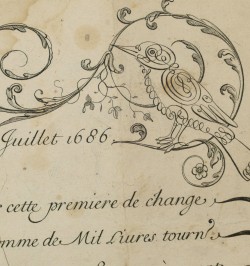 Juillet 1686
cette premiere de change
omme de Mil Liures tourn: